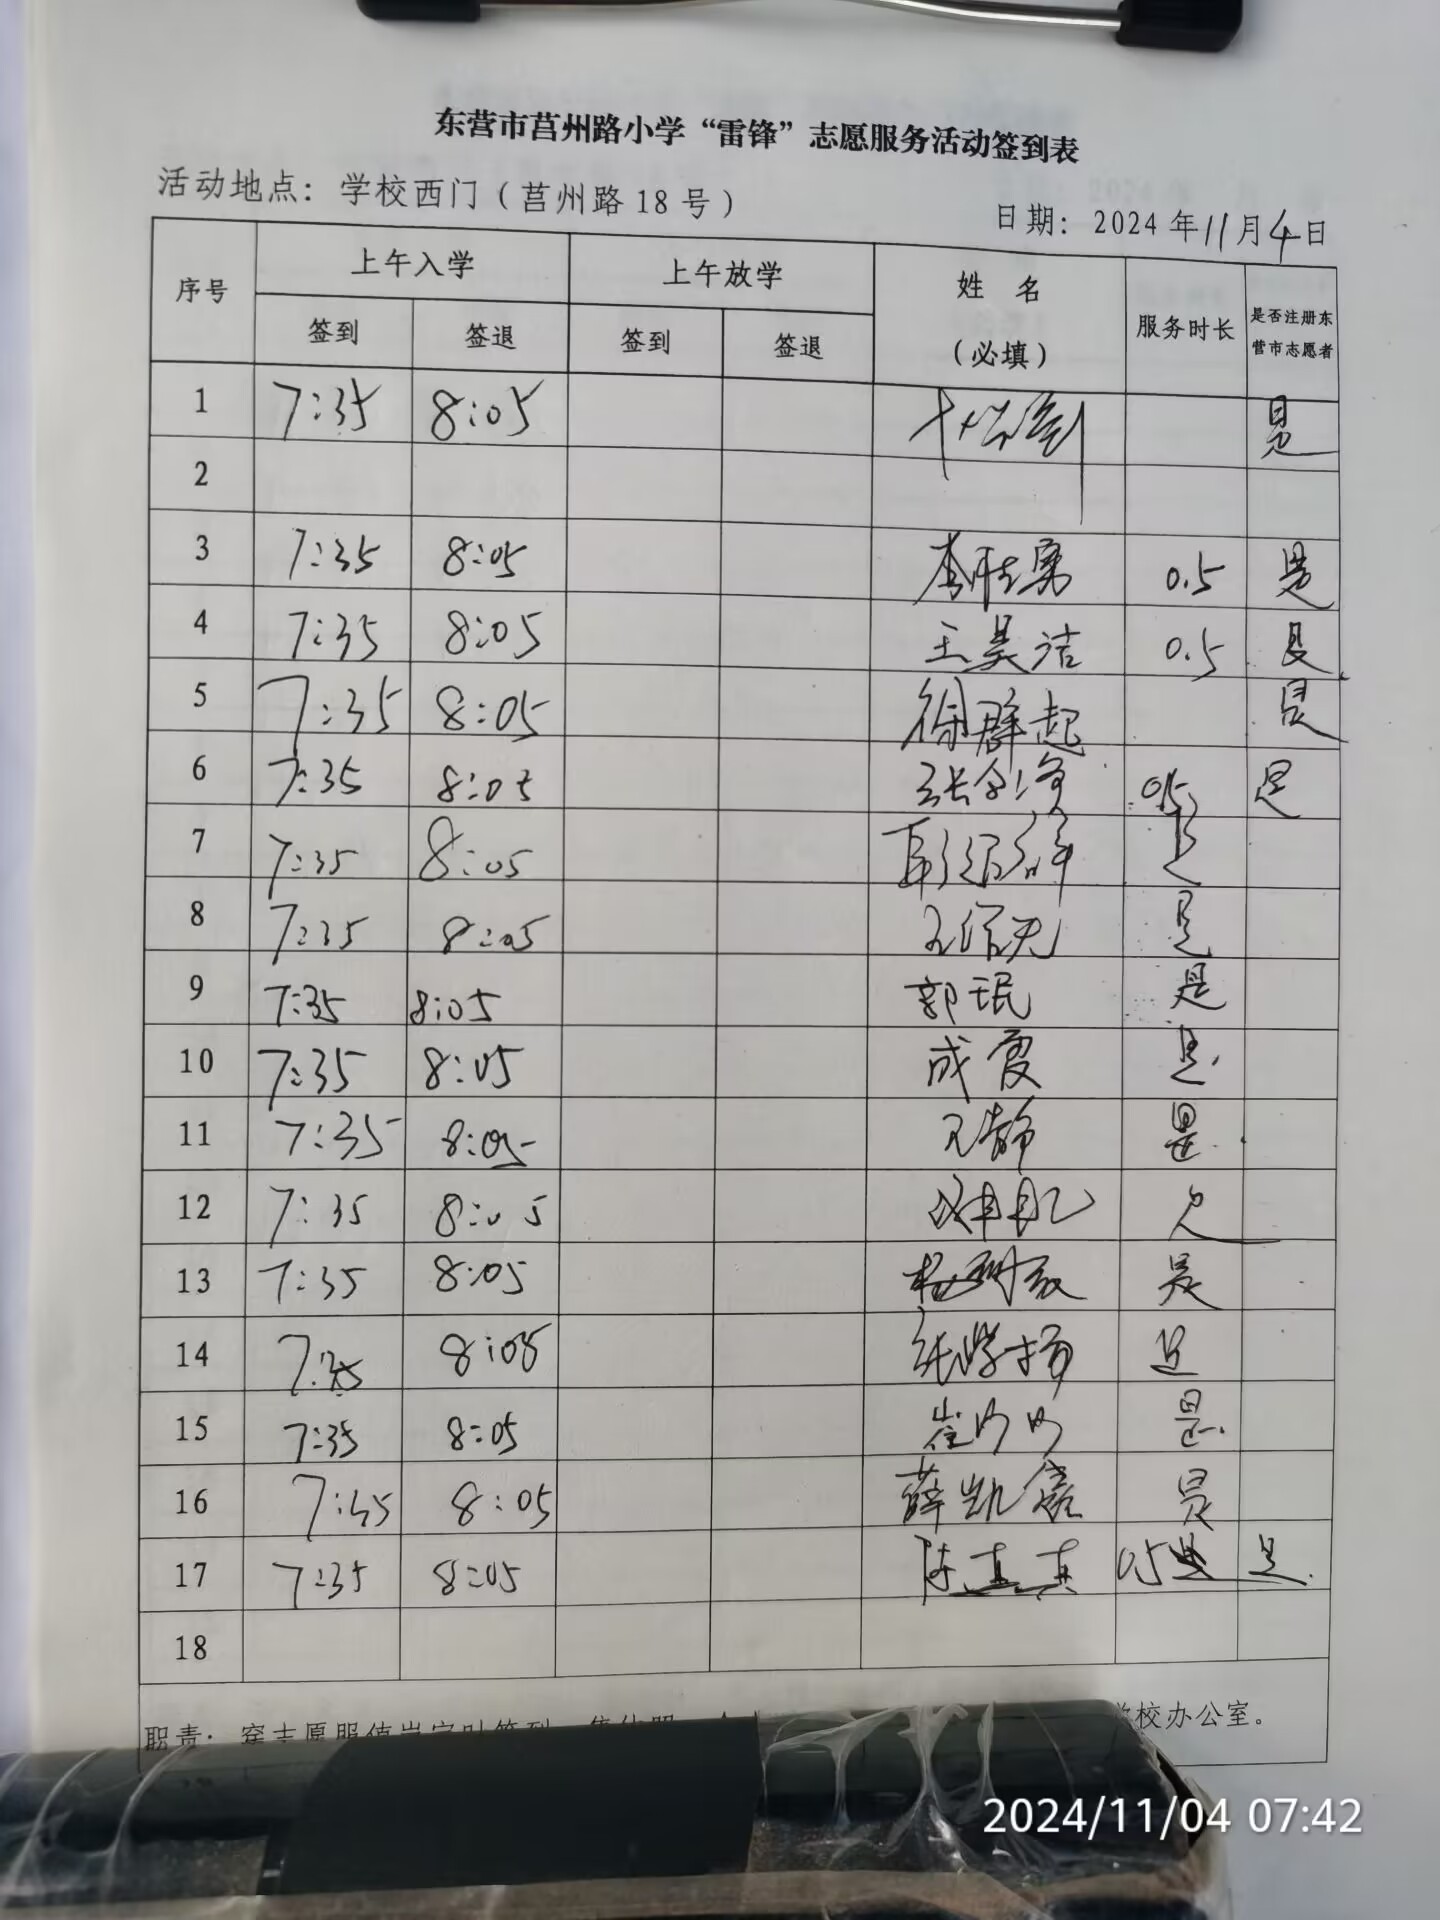 东营市莒州路小学“雷锋”志愿服务活动签到表
活动地点：学校西门（莒州路18号）
日期：2024年11月4日
序号 上午入学 上午放学 姓 名（必填） 服务时长 是否注册东营市志愿者
签到 签退 签到 签退
1 7:35 8:05 是
2
3 7:35 8:05 0.5 是
4 7:35 8:05 王昊洁 0.5 是
5 7:35 8:05 徐群起 是
6 7:35 8:05 0.5 是
7 7:35 8:05 是
8 7:35 8:05 是
9 7:35 8:05 郭珉 是
10 7:35 8:05 成霞 是
11 7:35 8:05 王静 是
12 7:35 8:05
13 7:35 8:05 是
14 7:35 8:05 是
15 7:35 8:05 崔 是
16 7:35 8:05 薛凯 是
17 7:35 8:05 陈真真 0.5 是
18
职责：穿志愿服值岗 学校办公室。
2024/11/04 07:42